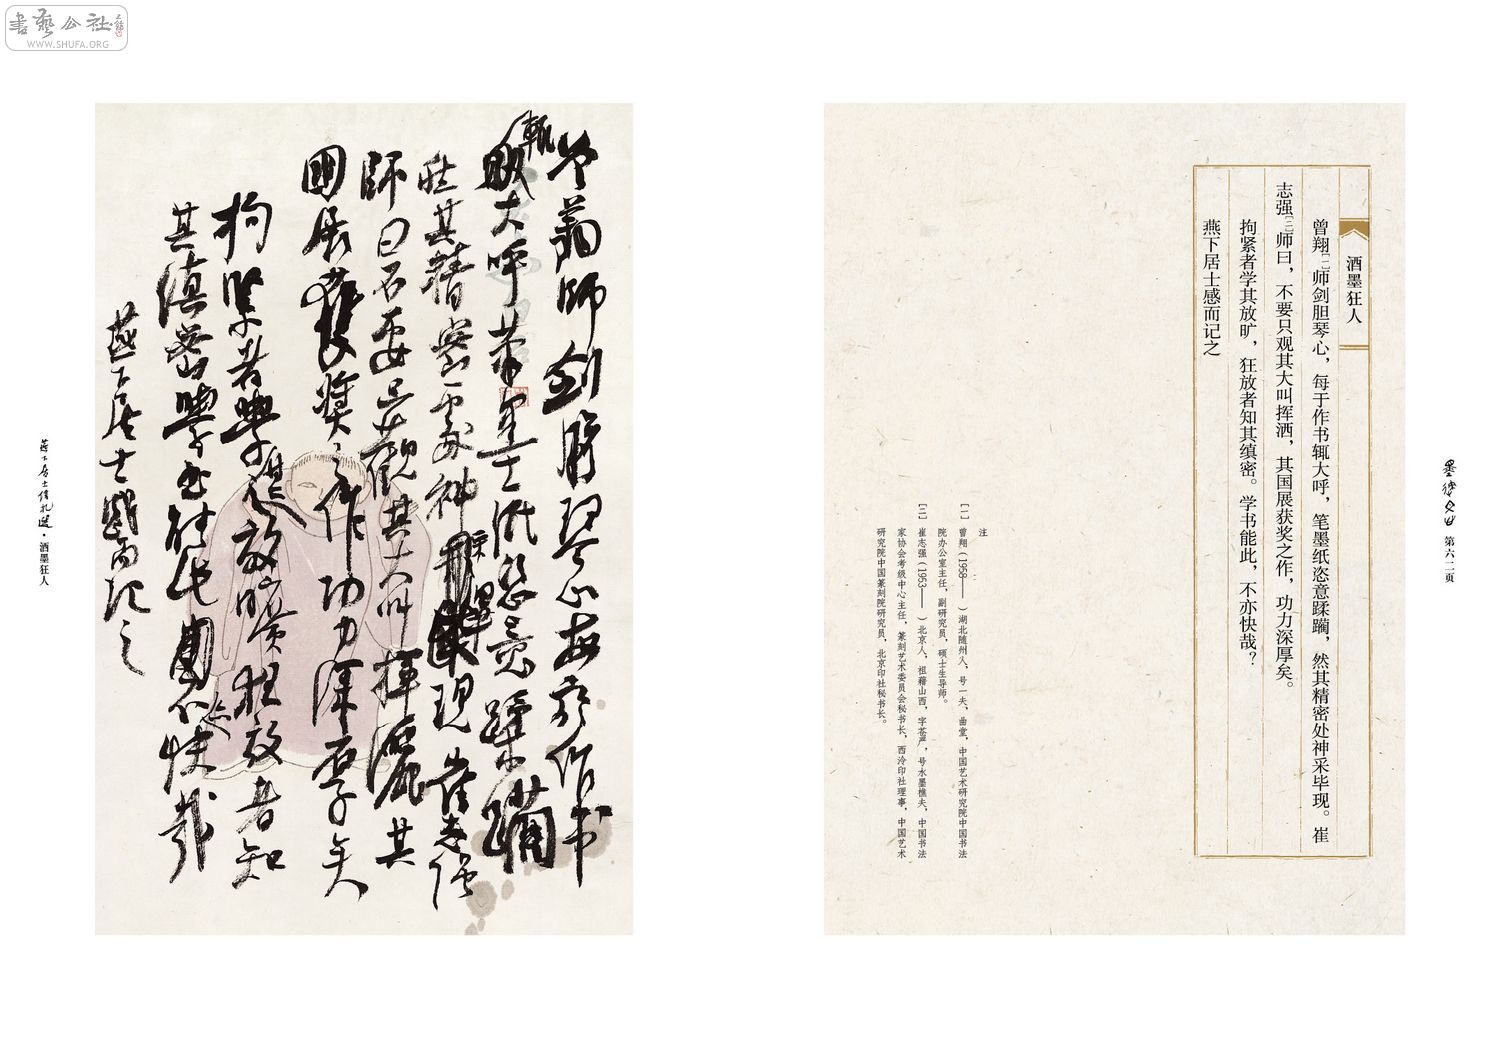 書藝公社
WWW.SHUFA.ORG
酒墨狂人
曾翔[一]师剑胆琴心，每于作书辄大呼，笔墨纸恣意蹂躏，然其精密处神采毕现。崔
志强[二]师曰，不要只观其大叫挥洒，其国展获奖之作，功力深厚矣。
拘紧者学其放旷，狂放者知其缜密。学书能此，不亦快哉？
燕下居士感而记之
注
[一] 曾翔（1958——　）湖北随州人，号一夫、曲堂，中国艺术研究院中国书法
院办公室主任，副研究员，硕士生导师。
[二] 崔志强（1953——　）北京人，祖籍山西，字苍严，号水墨樵夫，中国书法
家协会考级中心主任，篆刻艺术委员会秘书长，西泠印社理事，中国艺术
研究院中国篆刻院研究员，北京印社秘书长。
第六二页
曾翔師劍膽琴心每於作书
輒大呼筆墨士紙恣意蹂躪
然其精密處神采畢現崔志强
師曰不要只觀其大叫揮灑其
國展獲奖之作功力深厚矣
拘紧者學其放曠狂放者知
其缜密學书能此不亦快哉
燕下居士感而记之
燕下居士信札选·酒墨狂人